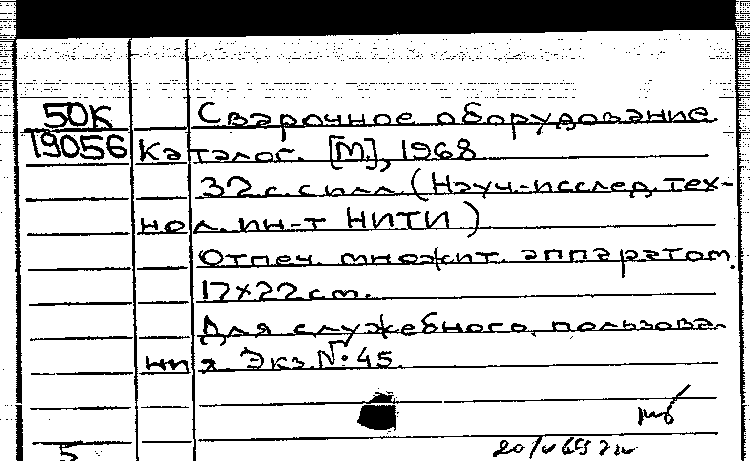 50К Сварочное оборудование.
Т9056 Каталог. [М.], 1968
32 с. с илл. (Науч.-исслед. тех-
нол. ин-т НИТИ)
Отпеч. множит. аппаратом.
17х22 см.
Для служебного пользова-
ния. Экз. № 45.
5